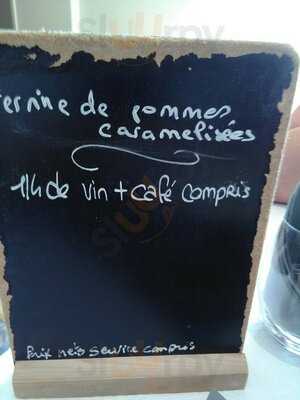 ermine de pommes
caramelisées
1/4 de vin + café compris
Prix nets service compris